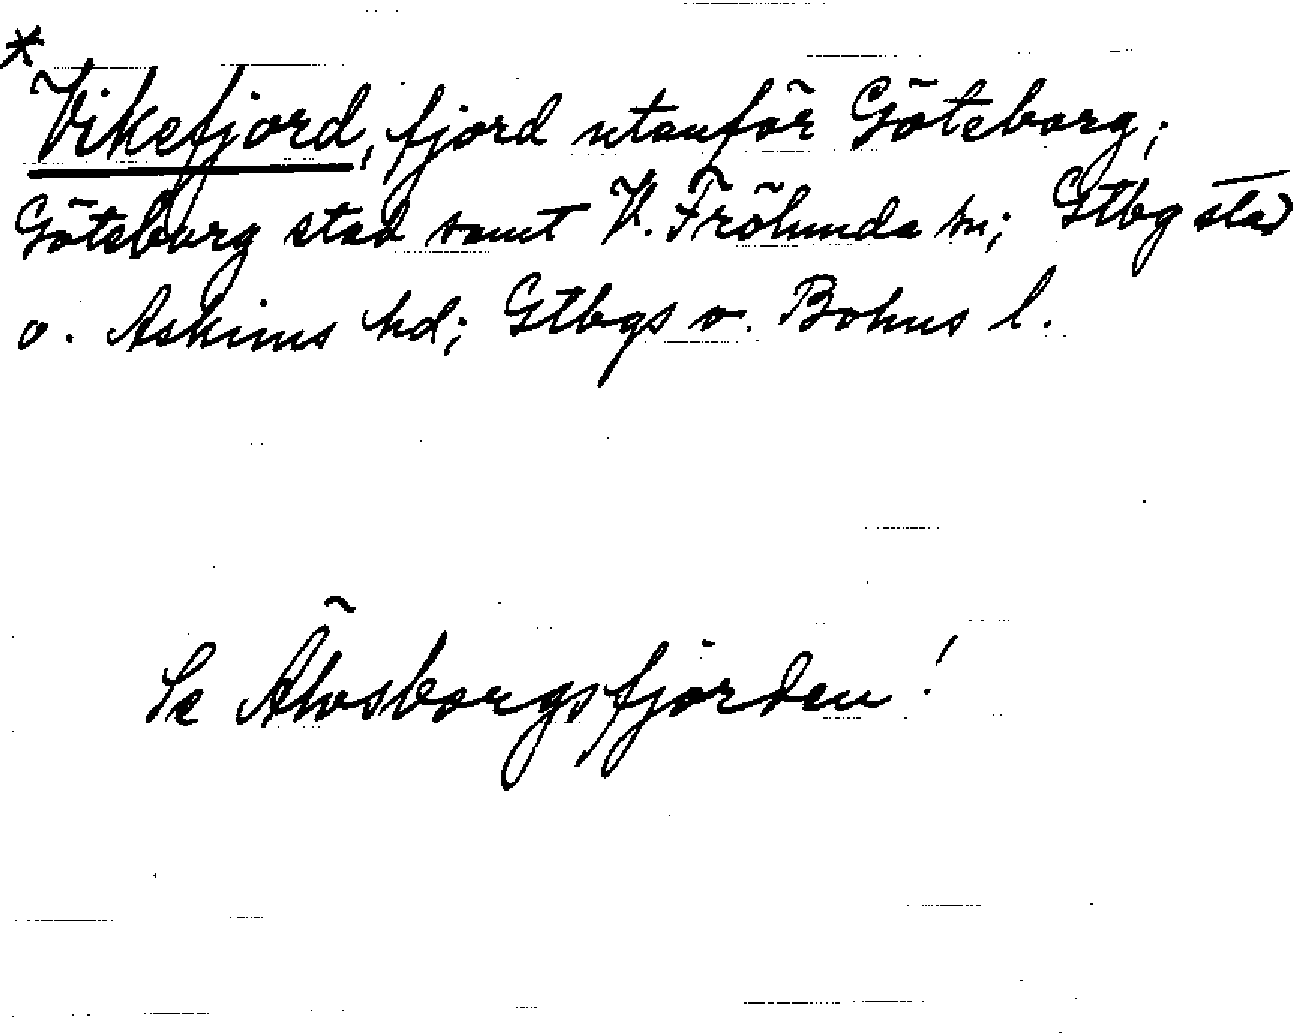 * Vikefjord, fjord utanför Göteborg;
Göteborg stad samt V. Frölunda sn; Gtbg stad
o. Askims hd; Gtbgs o. Bohus l.
Se Älvsborgsfjorden!